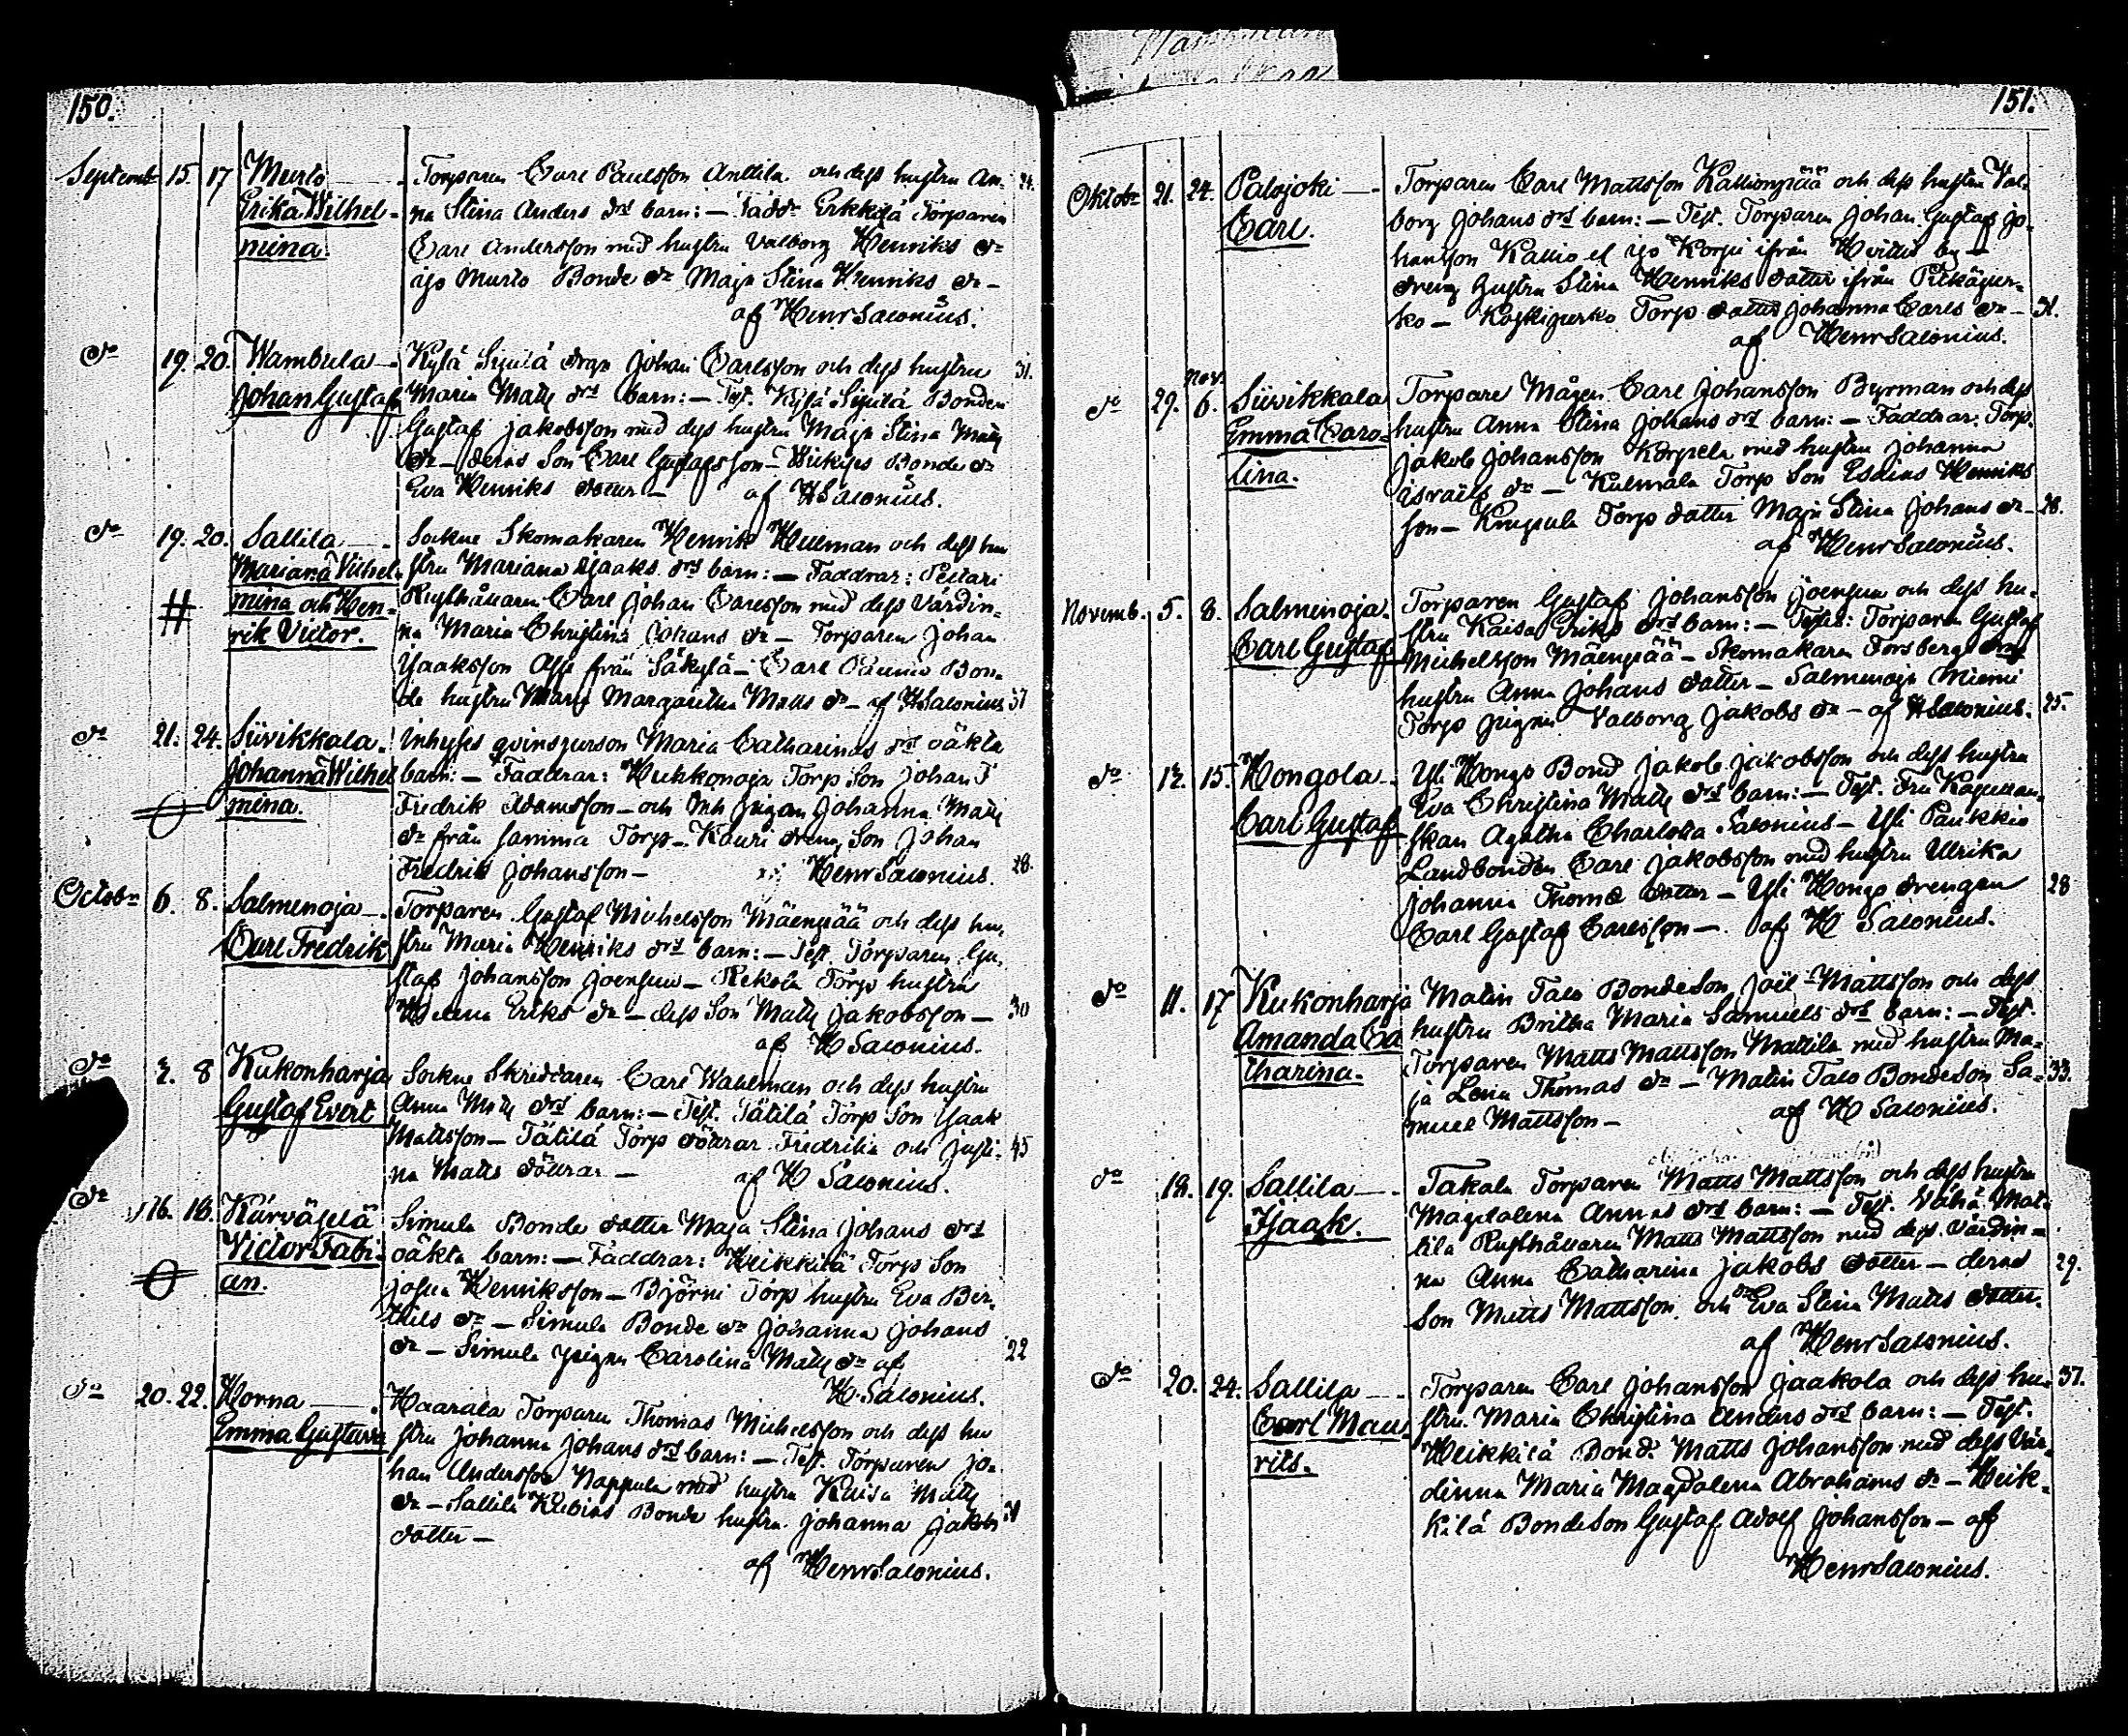 150.
Septemb 15. 17 Murto
Erika Wilhel-
mina.
Torparen Carl Paulsson Anttila och dess hustru An- 24.
na Stina Anders drs barn: — Fadd: Erkkilä Torparen
Carl Andersson med hustru Valborg Henriks dr
Murto Bonde dr Maja Stina Henriks dr —
af Henr Salonius.
do 19. 20. Wambula —
Johan Gustaf
Kylä Sipilä drgn Johan Carlsson och dess hustru 31.
Maria Matts drs barn: — Test. Kylä Sipilä Bonden
Gustaf Jakobsson med dess hustru Maja Stina Matts
dr — deras Son Carl Gustafsson — Bonde dr
Eva Henriks dotter — af H Salonius.
do 19. 20. Sallila —
Mariana Vilhel-
mina och Hen-
rik Victor.
Sockne Skomakaren Henrik Hellman och dess hu
stru Mariana Isaaks drs barn: — Faddrar:
Rusthållaren Carl Johan Carlsson med dess Värdin-
na Maria Christina Johans dr — Torparen Johan
Isaaksson från Säkylä — Carl Bon-
de hustru Maria Margaretha Matts dr — af H Salonius 37
do 21. 24. Siivikkala.
Johanna Wilhel
mina.
Inhyses qvinsperson Maria Catharinas drs oäkta
barn: — Faddrar: Hukkonoja Torp Son Johan
Fredrik Adamsson — och Inh pigan Johanna Matts
dr från samma Torp — Kauri dreng Son Johan
Fredrik Johansson — Henr Salonius. 28.
Octobr 6. 8. Salmenoja —
Carl Fredrik
Torparen Gustaf Michelsson Mäenpää och dess hu-
stru Maria Henriks drs barn: — Test. Torparen Gu-
staf Johansson Joensuu — Rekola Torp hustru
Helena Eriks dr — dess Son Matts Jakobsson — 30
af H Salonius.
do 2. 8 Kukonharja
Gustaf Evert
Sockne Skreddaren Carl Wahlman och dess hustru
Anna Matts drs barn: — Test. Tätilä Torp Son Isaak
Mattsson — Tätilä Torp döttrar Fredrika och Justi- 45
na Matts döttrar — af H Salonius.
do 16. 18. Kärväselä
Victor Fabi-
an.
Simula Bonde dotter Maja Stina Johans drs
oäkta barn: — Faddrar: Heikkilä Torp Son
Josua Henriksson — Björni Torp hustru Eva Ber-
thils dr — Simula Bonde dr Johanna Johans
dr — Simula pigan Carolina Matts dr af 22
H. Salonius.
do 20. 22. Horna —
Emma Gustava
Haarala Torparen Thomas Michelsson och dess hu
stru Johanna Johans drs barn: — Test. Torparen Jo-
han Andersson Nappula med hustru Kaisa Matts
dr — Sallila Bonde hustru Johanna Jakobs 31
dotter —
af Henr Salonius.
151.
Oktobr 21. 24. Palojoki —
Carl.
Torparen Carl Mattsson Kallionpää och dess hustru Val-
borg Johans drs barn: — Test. Torparen Johan Gustaf Jo-
hansson Kallio ifrån Hvittis by —
dreng hustru Stina Henriks dotter ifrån
Torp dotter Johanna Carls dr — 31.
af Henr Salonius.
do 29. Nov. 6. Siivikkala
Emma Caro-
lina.
Torpare Mågen Carl Johansson Byrman och dess
hustru Anna Stina Johans drs barn: — Faddrar: Torp.
Jakob Johansson Korpela med hustru Johanna
Israels dr — Kulmala Torp Son Esaias Henriks
son — Torp dotter Maja Stina Johans dr — 28.
af Henr Salonius.
Novemb. 5. 8. Salmenoja.
Carl Gustaf
Torparen Gustaf Johansson Joensuu och dess hu-
stru Kaisa Eriks drs barn: — Testes: Torparen Gustaf
Michelsson Mäenpää — Skomakaren Forsbergs
hustru Anna Johans dotter — Salmenoja Niemi
Torp pigan Valborg Jakobs dr — af H Salonius. 25.
do 12. 15. Hongola —
Carl Gustaf
Yli Hongo Bond Jakob Jakobsson och dess hustru
Eva Christina Matts drs barn: — Test. Fru Kapellan-
skan Agatha Charlotta Salonius — Yli Paukkio
Landbonden Carl Jakobsson med hustru Ulrika
Johanna Thomæ dotter — Yli Hongo drengen 28
Carl Gustaf Carlsson — af H Salonius.
do 11. 17 Kukonharja
Amanda Ca
tharina.
Matin Talo Bondeson Joël Mattsson och dess
hustru Britha Maria Samuels drs barn: — Test.
Torparen Matts Mattsson Mattila med hustru Ma-
ja Lena Thomas dr — Matin Talo Bondeson Sa- 33.
muel Mattsson — af H Salonius.
do 18. 19. Sallila —
Isaak.
Takala Torparen Matts Mattsson och dess hustru
Magdalena Annas drs barn: — Test. Vähä Mat-
tila Rusthållaren Matts Mattsson med dess Värdin-
na Anna Catharina Jakobs dotter — deras 29.
Son Matts Mattsson och dr Eva Stina Matts dotter.
af Henr Salonius.
do 20. 24. Sallila —
Carl Mau-
rits.
Torparen Carl Johansson Jaakola och dess hu- 37.
stru Maria Christina Anders drs barn: — Test.
Heikkilä Bond. Matts Johansson med dess Vär-
dinna Maria Magdalena Abrahams dr — Heik-
kilä Bondeson Gustaf Adolf Johansson — af
Henr Salonius.